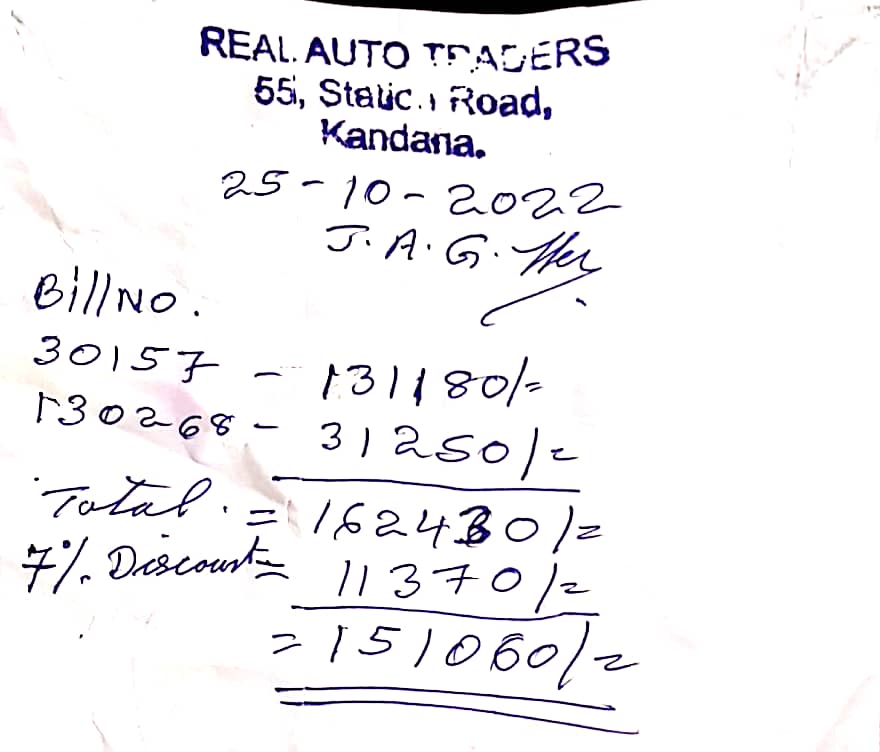 REAL AUTO TRADERS
55, Station Road,
Kandana.
25-10-2022
J. A. G.
Bill No.
30157 - 131180/=
130268 - 31250/=
Total. = 162430/=
7%. Discount = 11370/=
= 151060/=